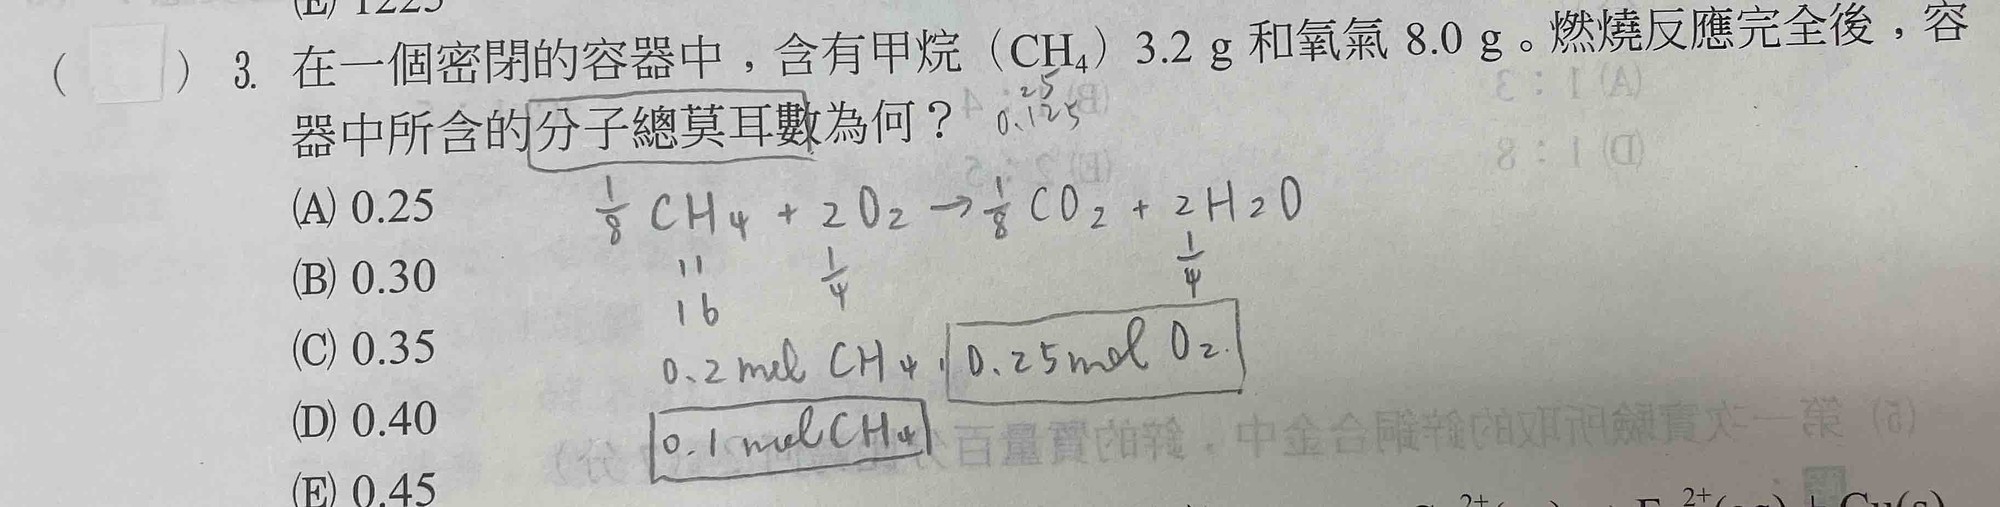 (E) 1225
(　) 3. 在一個密閉的容器中，含有甲烷（CH₄）3.2 g 和氧氣 8.0 g。燃燒反應完全後，容
器中所含的分子總莫耳數為何？
25
0.125
(A) 0.25
1/8 CH4 + 2O2 → 1/8 CO2 + 2H2O
11 1/4 1/4
16
(B) 0.30
(C) 0.35
0.2 mol CH4, 0.25 mol O2.
(D) 0.40
0.1 mol CH4
(E) 0.45